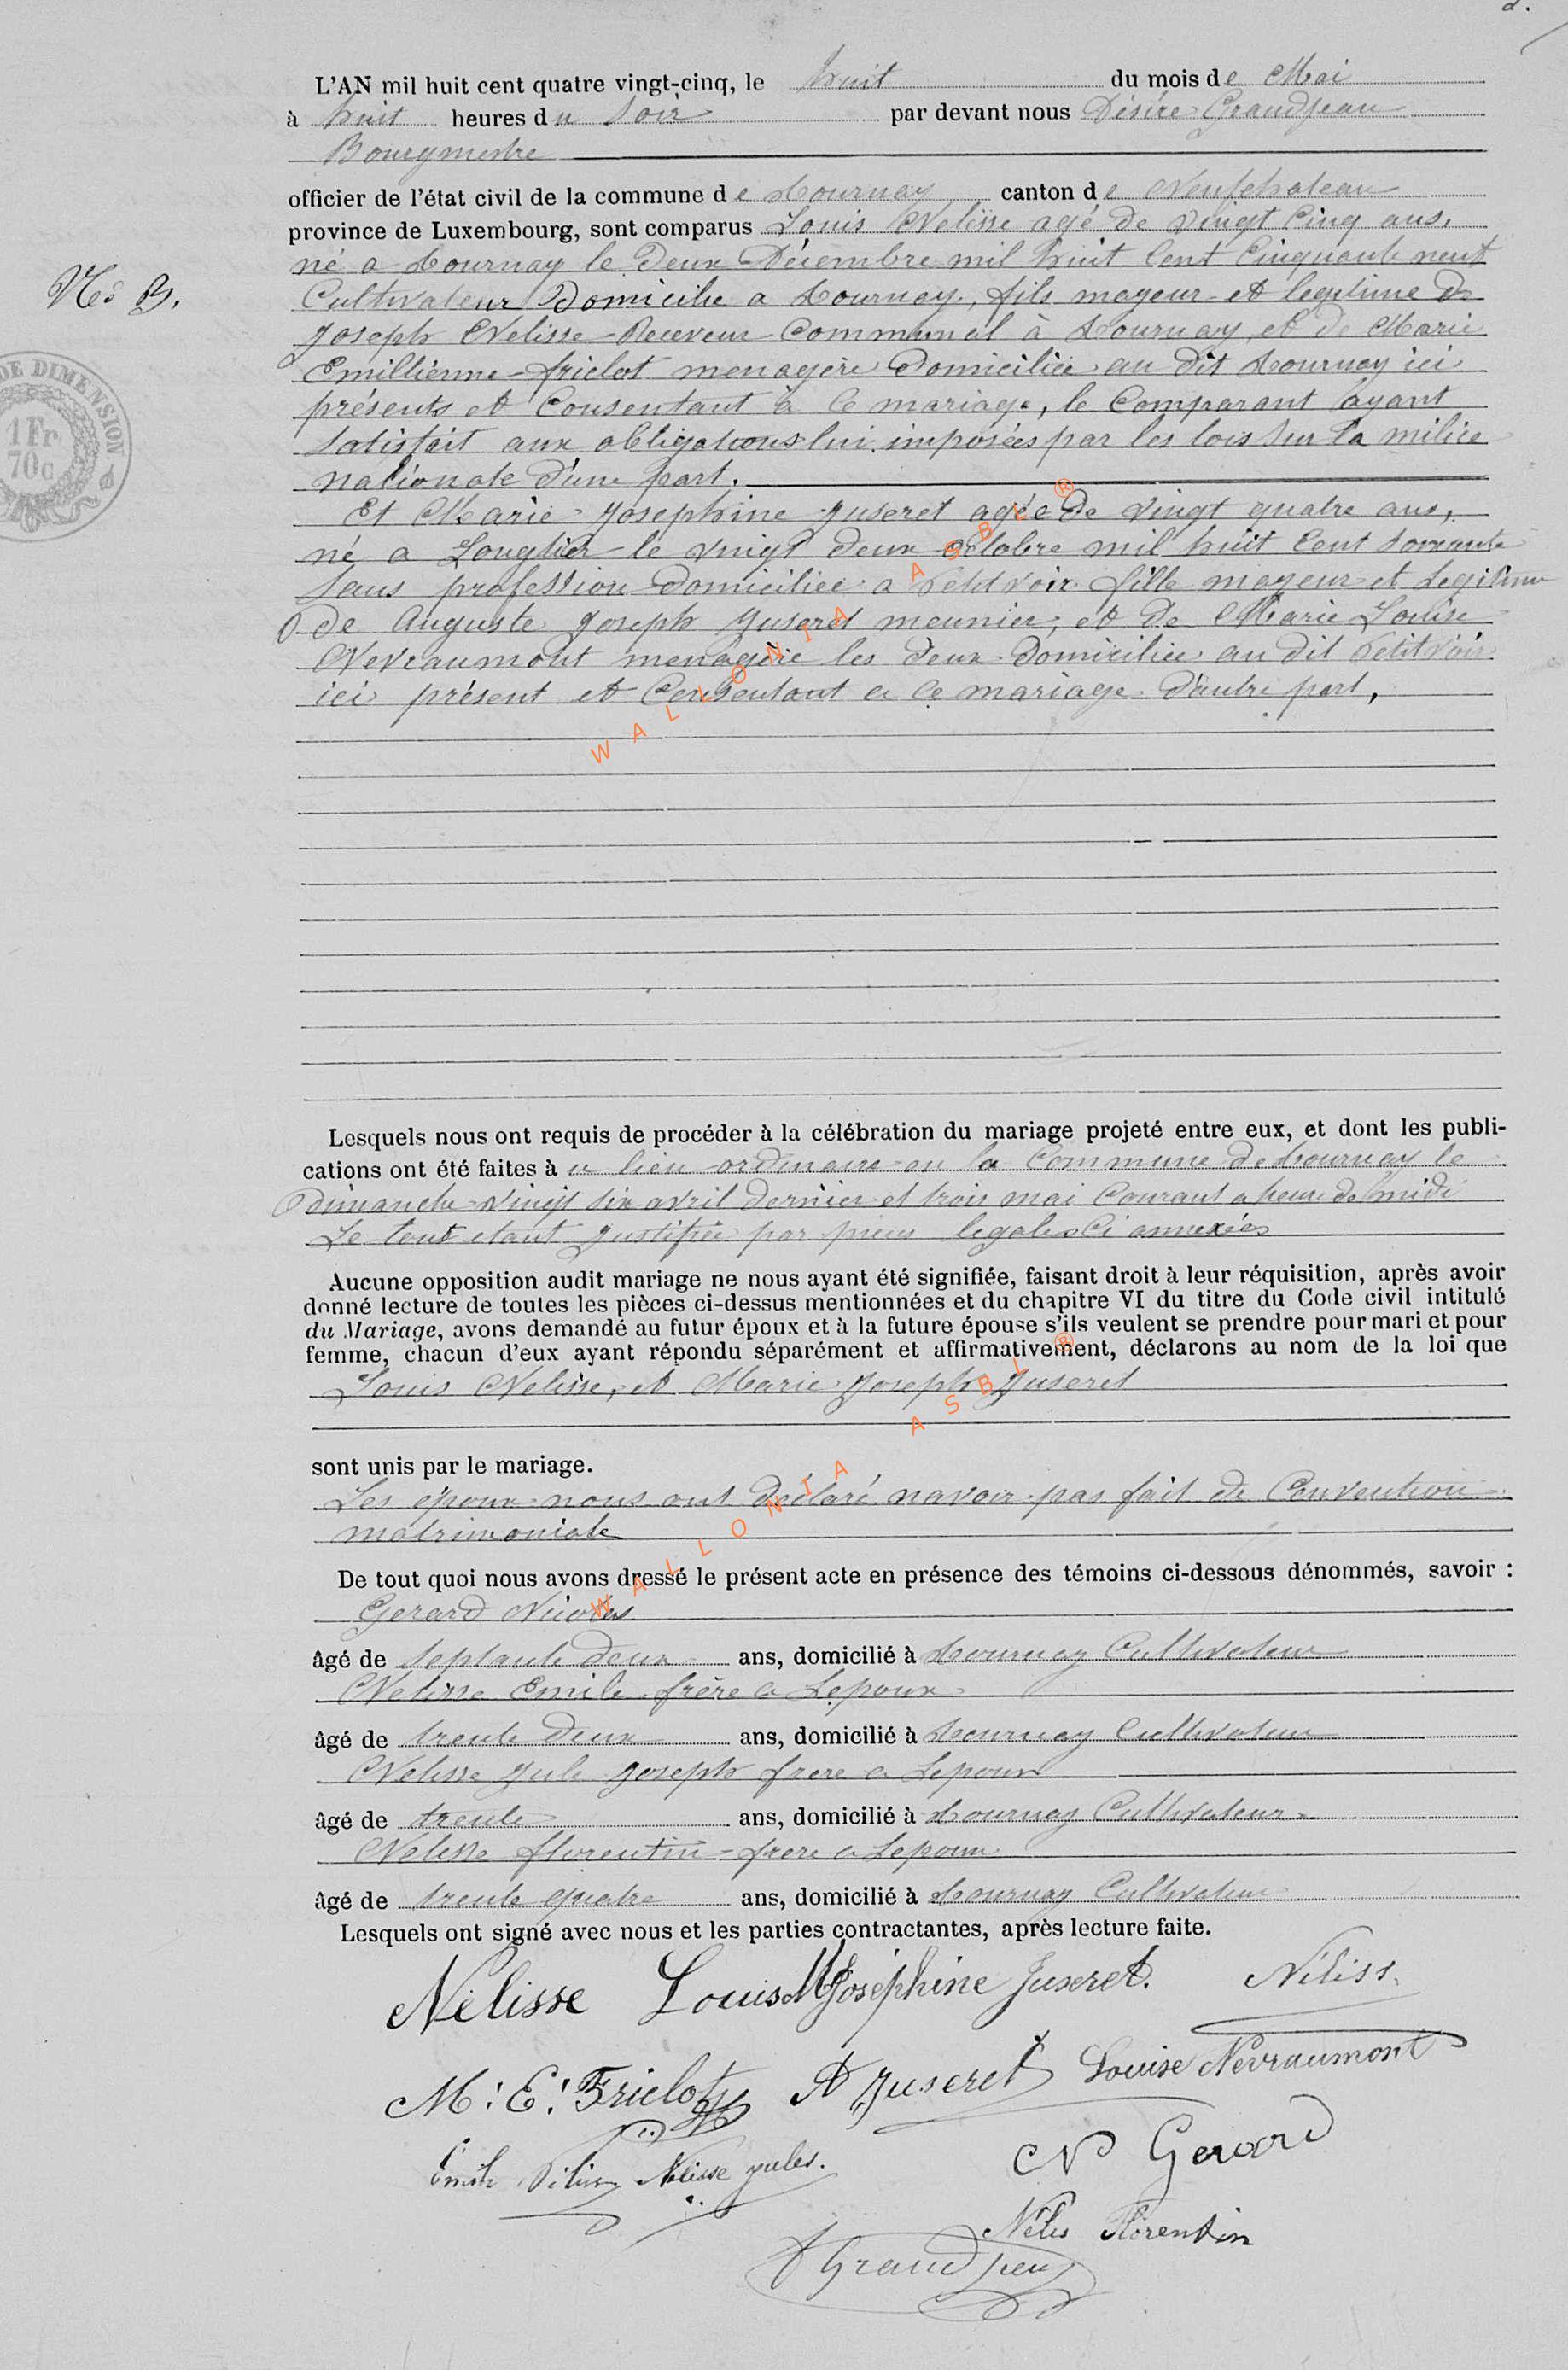 L'AN mil huit cent quatre vingt-cinq, le huit du mois de Mai
à huit heures du Soir par devant nous Désiré Grandjean
Bourgmestre
officier de l'état civil de la commune de Tournay canton de Neufchateau
province de Luxembourg, sont comparus Louis Nelisse agé de vingt Cinq ans,
né a Tournay le deux Décembre mil huit Cent Cinquante neuf
No 3.
Cultivateur Domicilie a Tournay, fils mayeur et legitime de
Joseph Nelisse Receveur Communal à Tournay et de Marie
Emillienne friclot menagère Domiciliée au dit Tournay ici
présents et Consentant à Ce mariage, le Comparant ayant
Satisfait aux obligations lui imposées par les lois Sur la milice
nationale d'une part.
DE DIMENSION
1 Fr
70c
Et Marie Josephine Juseret agée de vingt quatre ans,
né a Longlier le vingt deux octobre mil huit Cent Soixante
Sans profession domiciliée a Petitvoir fille mayeur et Legitime
de Auguste Joseph Juseret meunier, et de Marie Louise
Nevraumont menagère les deux domiciliée au dit Petitvoir
ici présent et Consentant a Ce mariage d'autre part,
WALLONIA ASBL ®
Lesquels nous ont requis de procéder à la célébration du mariage projeté entre eux, et dont les publi-
cations ont été faites à u lieu ordinaire en la Commune de Tournay le
dimanche vingt six avril dernier et trois mai Courant a heure de midi
Le tout etant Justifiée par pieces legales Ci annexées
Aucune opposition audit mariage ne nous ayant été signifiée, faisant droit à leur réquisition, après avoir
donné lecture de toutes les pièces ci-dessus mentionnées et du chapitre VI du titre du Code civil intitulé
du Mariage, avons demandé au futur époux et à la future épouse s'ils veulent se prendre pour mari et pour
femme, chacun d'eux ayant répondu séparément et affirmativement, déclarons au nom de la loi que
Louis Nelisse, et Marie Joseph Juseret
sont unis par le mariage.
Les époux nous ont déclaré navoir pas fait de Convention
matrimoniale
WALLONIA ASBL ®
De tout quoi nous avons dressé le présent acte en présence des témoins ci-dessous dénommés, savoir :
Gerard Nicolas
âgé de Septante deux ans, domicilié à Tournay Cultivateur
Nelisse Emile frère a Lepoux
âgé de trente deux ans, domicilié à Tournay Cultivateur
Nelisse Jule Joseph frere a Lepoux
âgé de trente ans, domicilié à Tournay Cultivateur
Nelisse florentin frere a Lepoux
âgé de trente quatre ans, domicilié à Tournay Cultivateur
Lesquels ont signé avec nous et les parties contractantes, après lecture faite.
Nélisse Louis M Joséphine Juseret. Néliss
M: E: Friclot A Juseret Louise Nevraumont
Emile Nélisse Nélisse jules. N Gerard
Nélis Florentin
D Grandjean